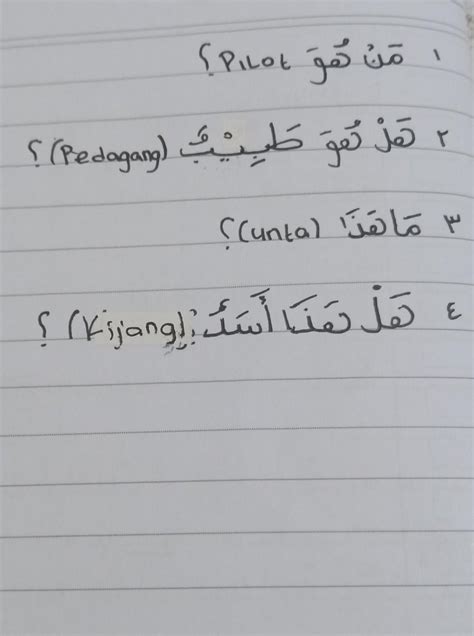 ١ مَنْ هُوَ PiLot ؟
٢ هَلْ هُوَ طَبِيْبٌ (Pedagang) ؟
٣ مَا هَذَا (unta) ؟
٤ هَلْ هَذَا أَسَدٌ (Kijang) ؟